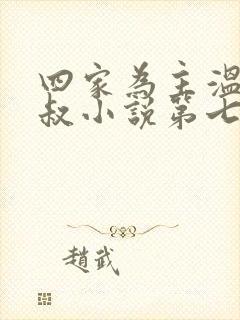 四家為主溫
叔小説第七
趙武